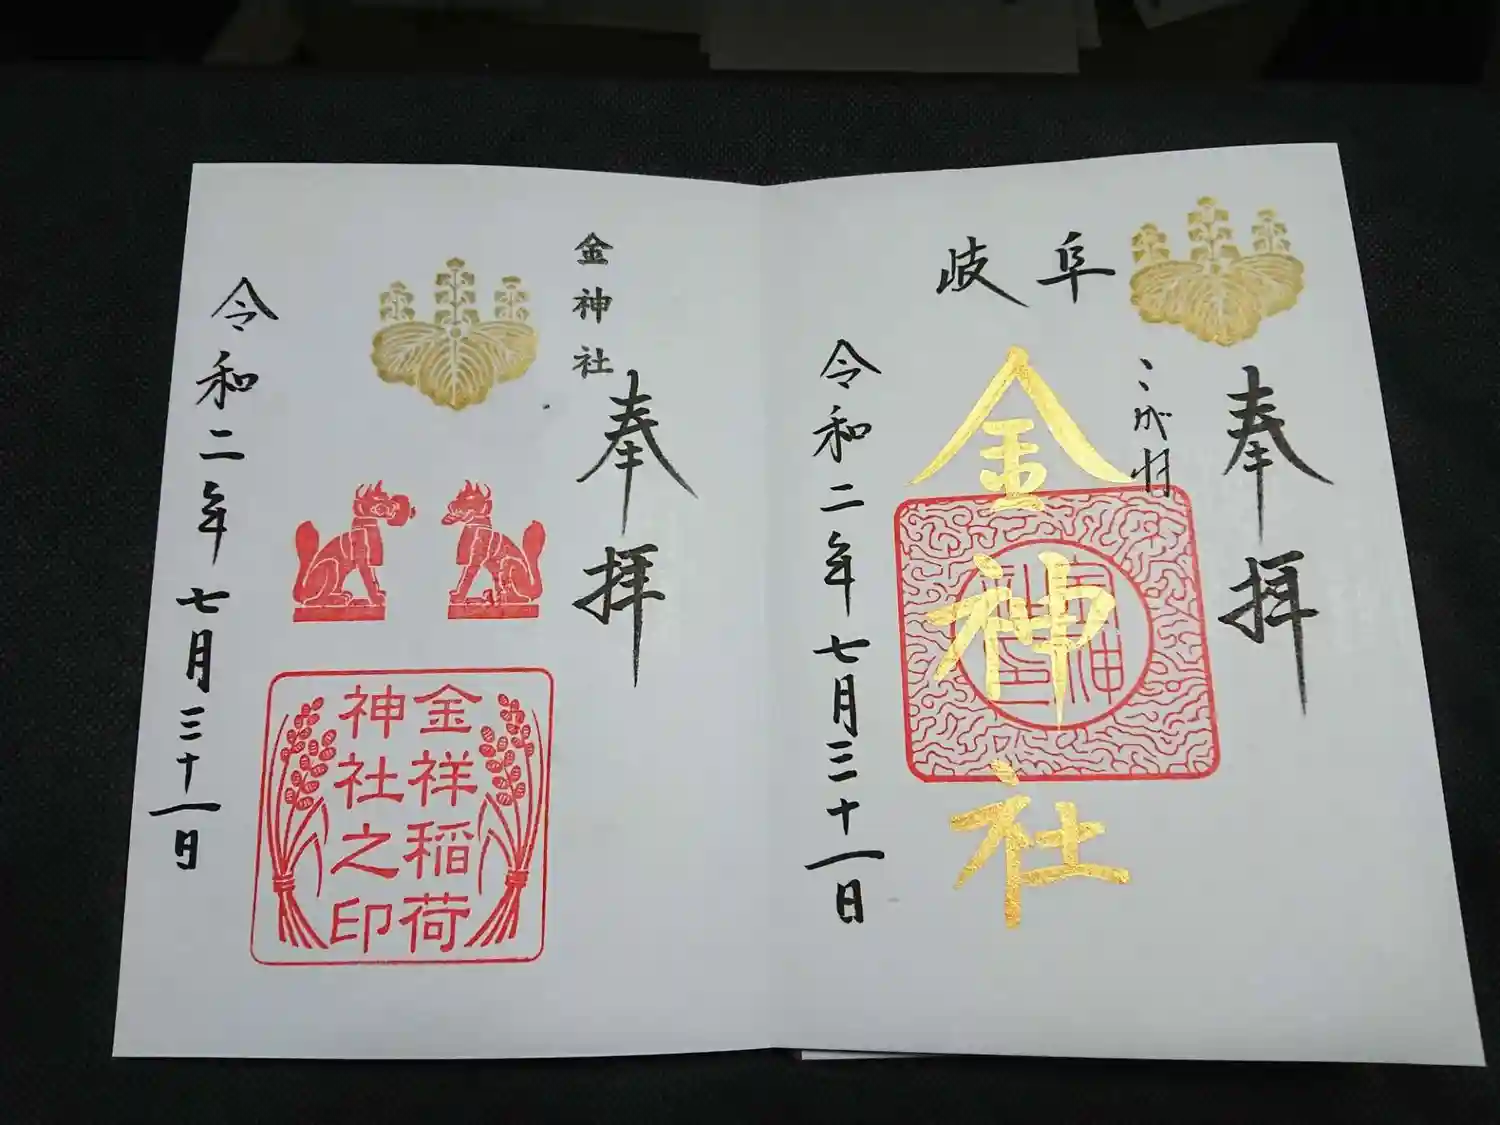 奉拝
岐阜
こがね
金神社
令和二年七月三十一日
奉拝
金神社
金祥稲荷
神社之印
令和二年七月三十一日